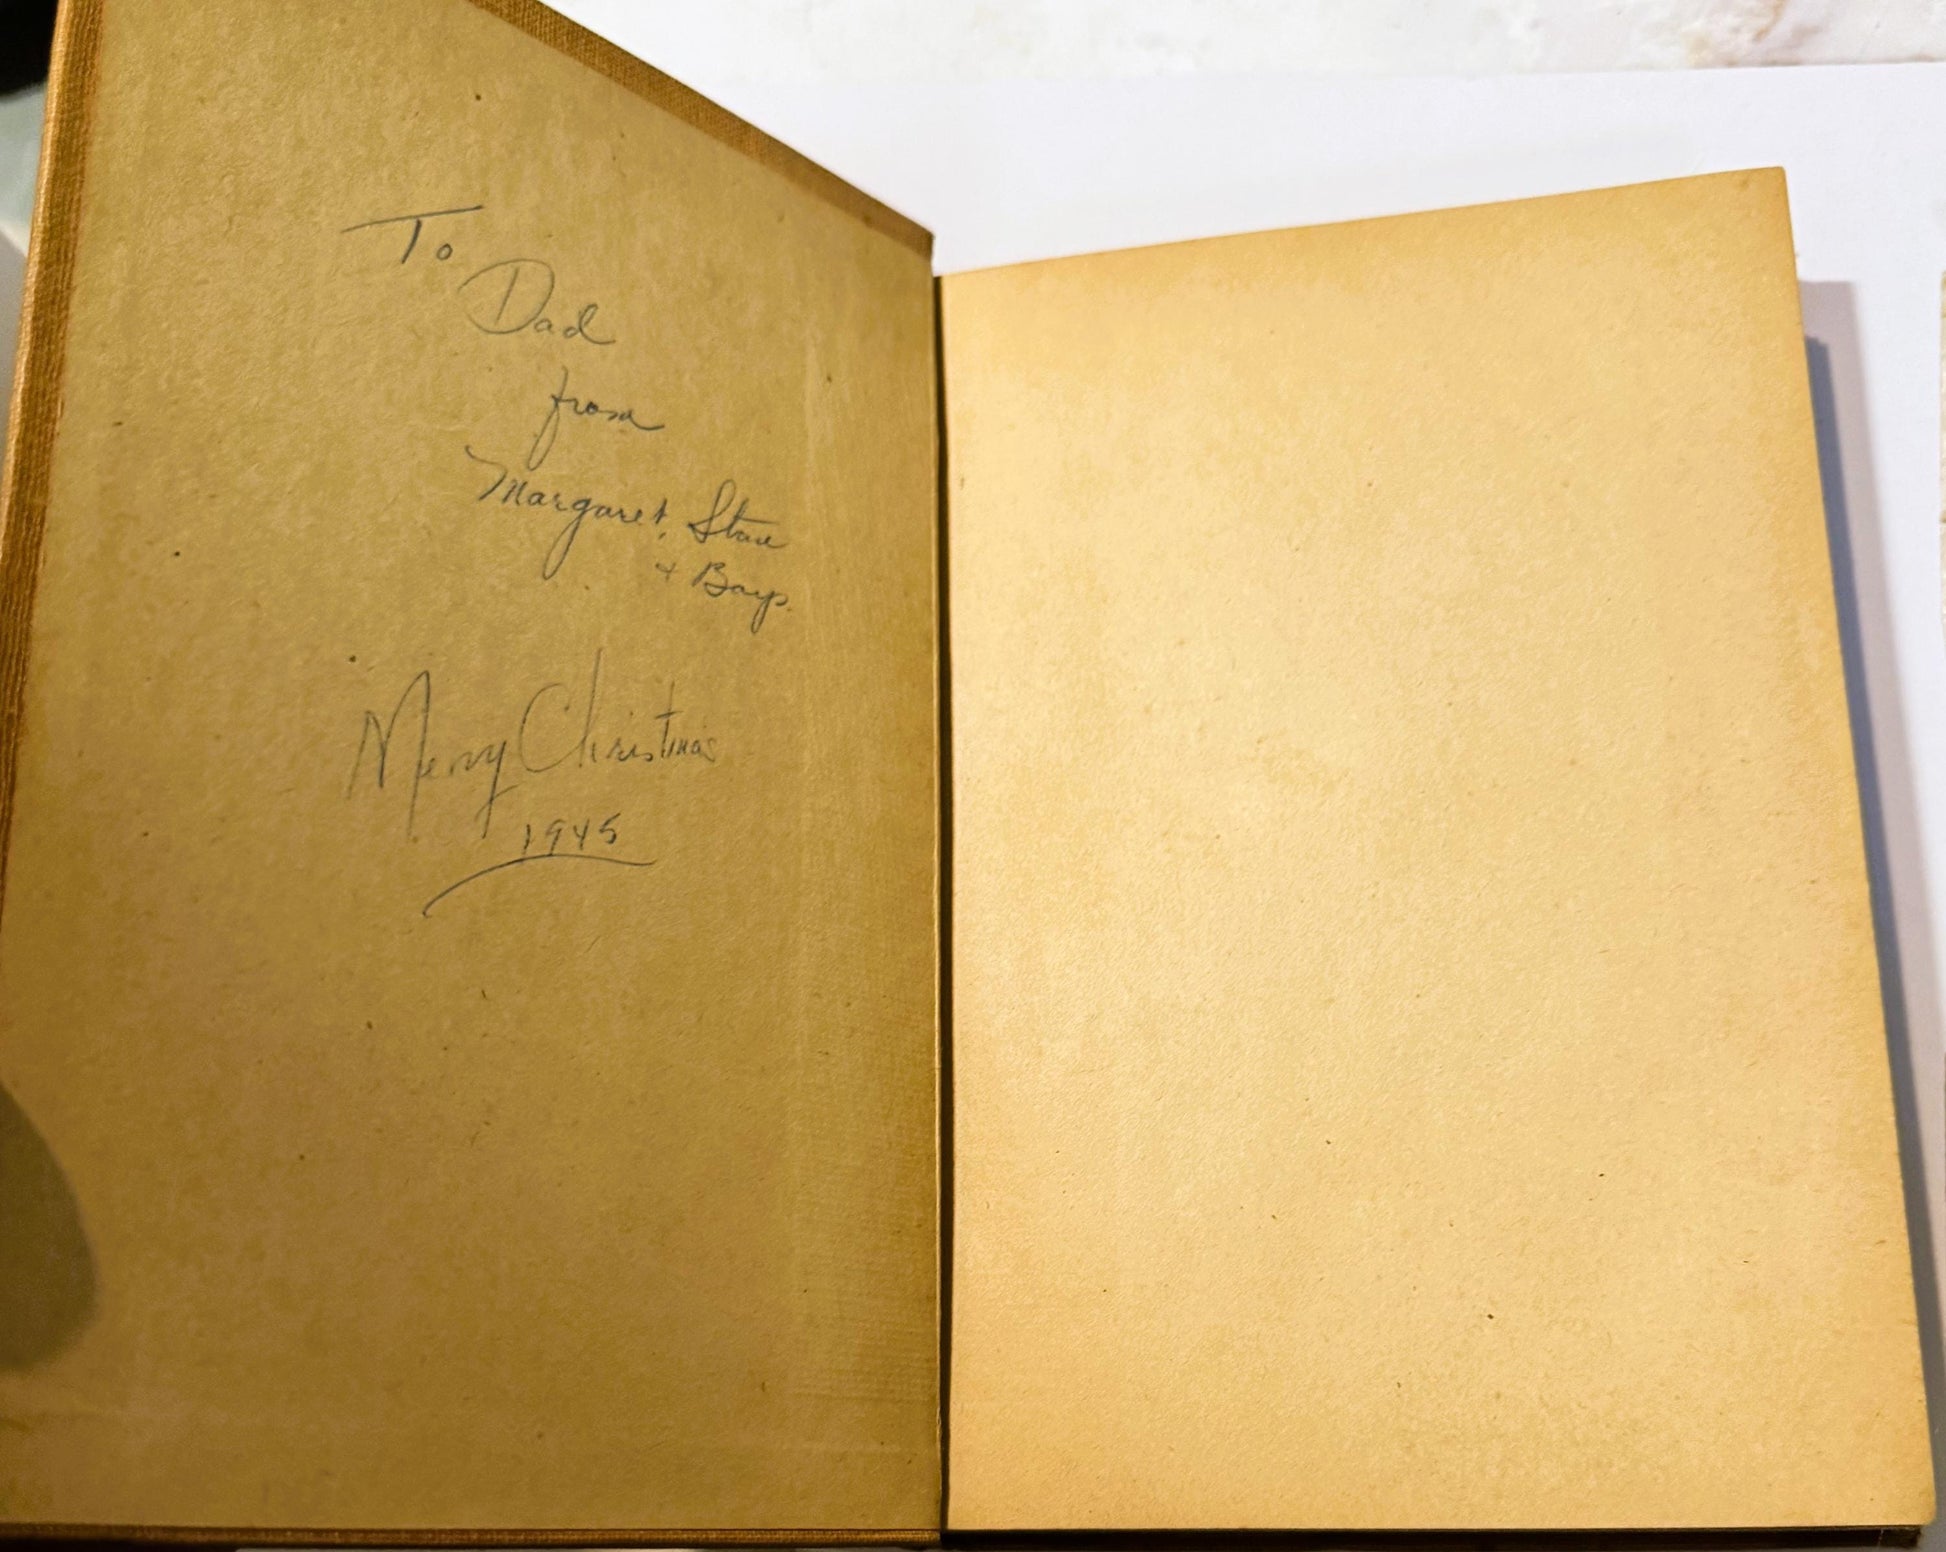 To
Dad
from
Margaret, Steve
+ Boys.
Merry Christmas
1945